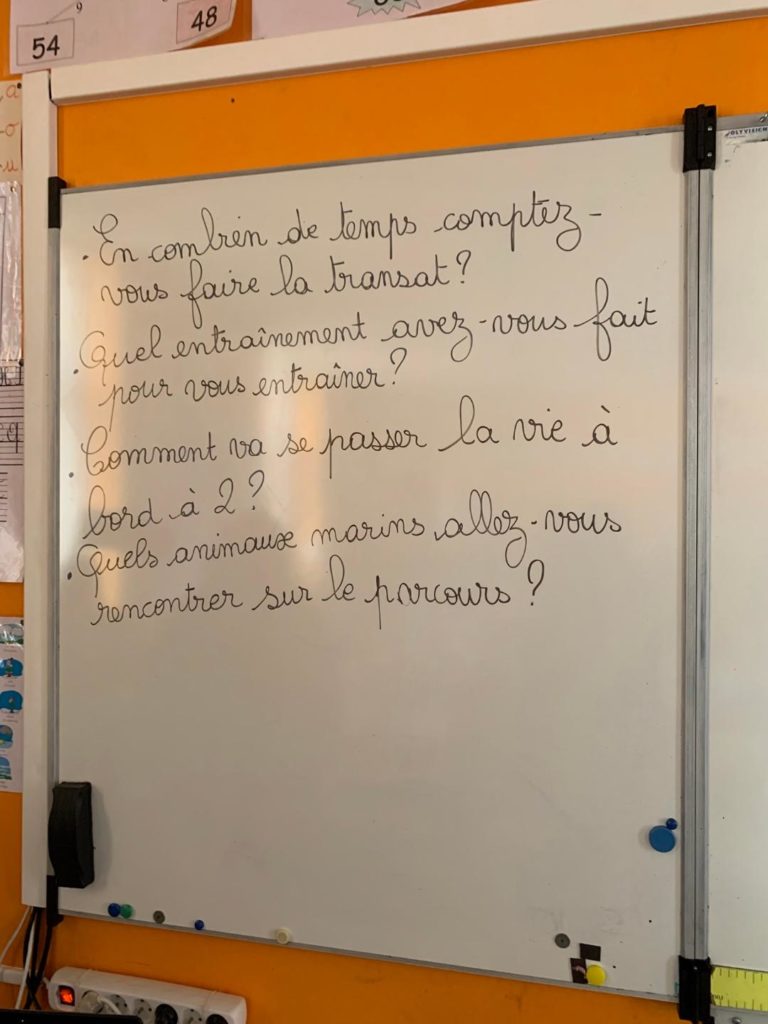 54
9
48
a
o
u
OLYVISION
. En combien de temps comptez-
vous faire la transat ?
. Quel entraînement avez-vous fait
pour vous entraîner ?
. Comment va se passer la vie à
bord à 2 ?
. Quels animaux marins allez-vous
rencontrer sur le parcours ?